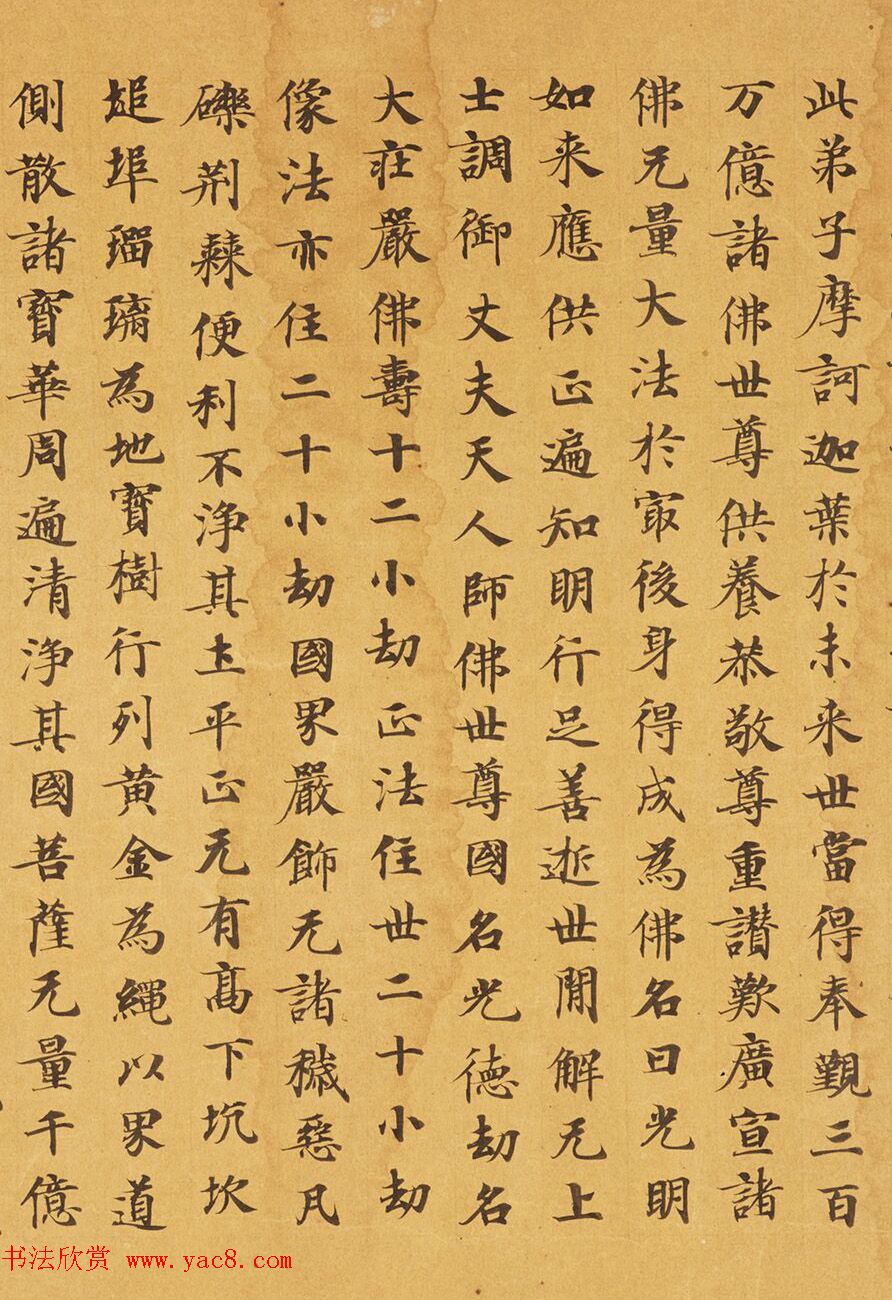 此弟子摩訶迦葉於未来世當得奉覲三百
万億諸佛世尊供養恭敬尊重讃歎廣宣諸
佛无量大法於㝡後身得成為佛名曰光明
如来應供正遍知明行足善逝世間解无上
士調御丈夫天人師佛世尊國名光德劫名
大莊嚴佛壽十二小劫正法住世二十小劫
像法亦住二十小劫國界嚴飾无諸穢惡凡
礫荆棘便利不淨其土平正无有髙下坑坎
塠埠瑠璃為地寶樹行列黄金為繩以界道
側散諸寶華周遍清淨其國菩薩无量千億
书法欣赏 www.yac8.com